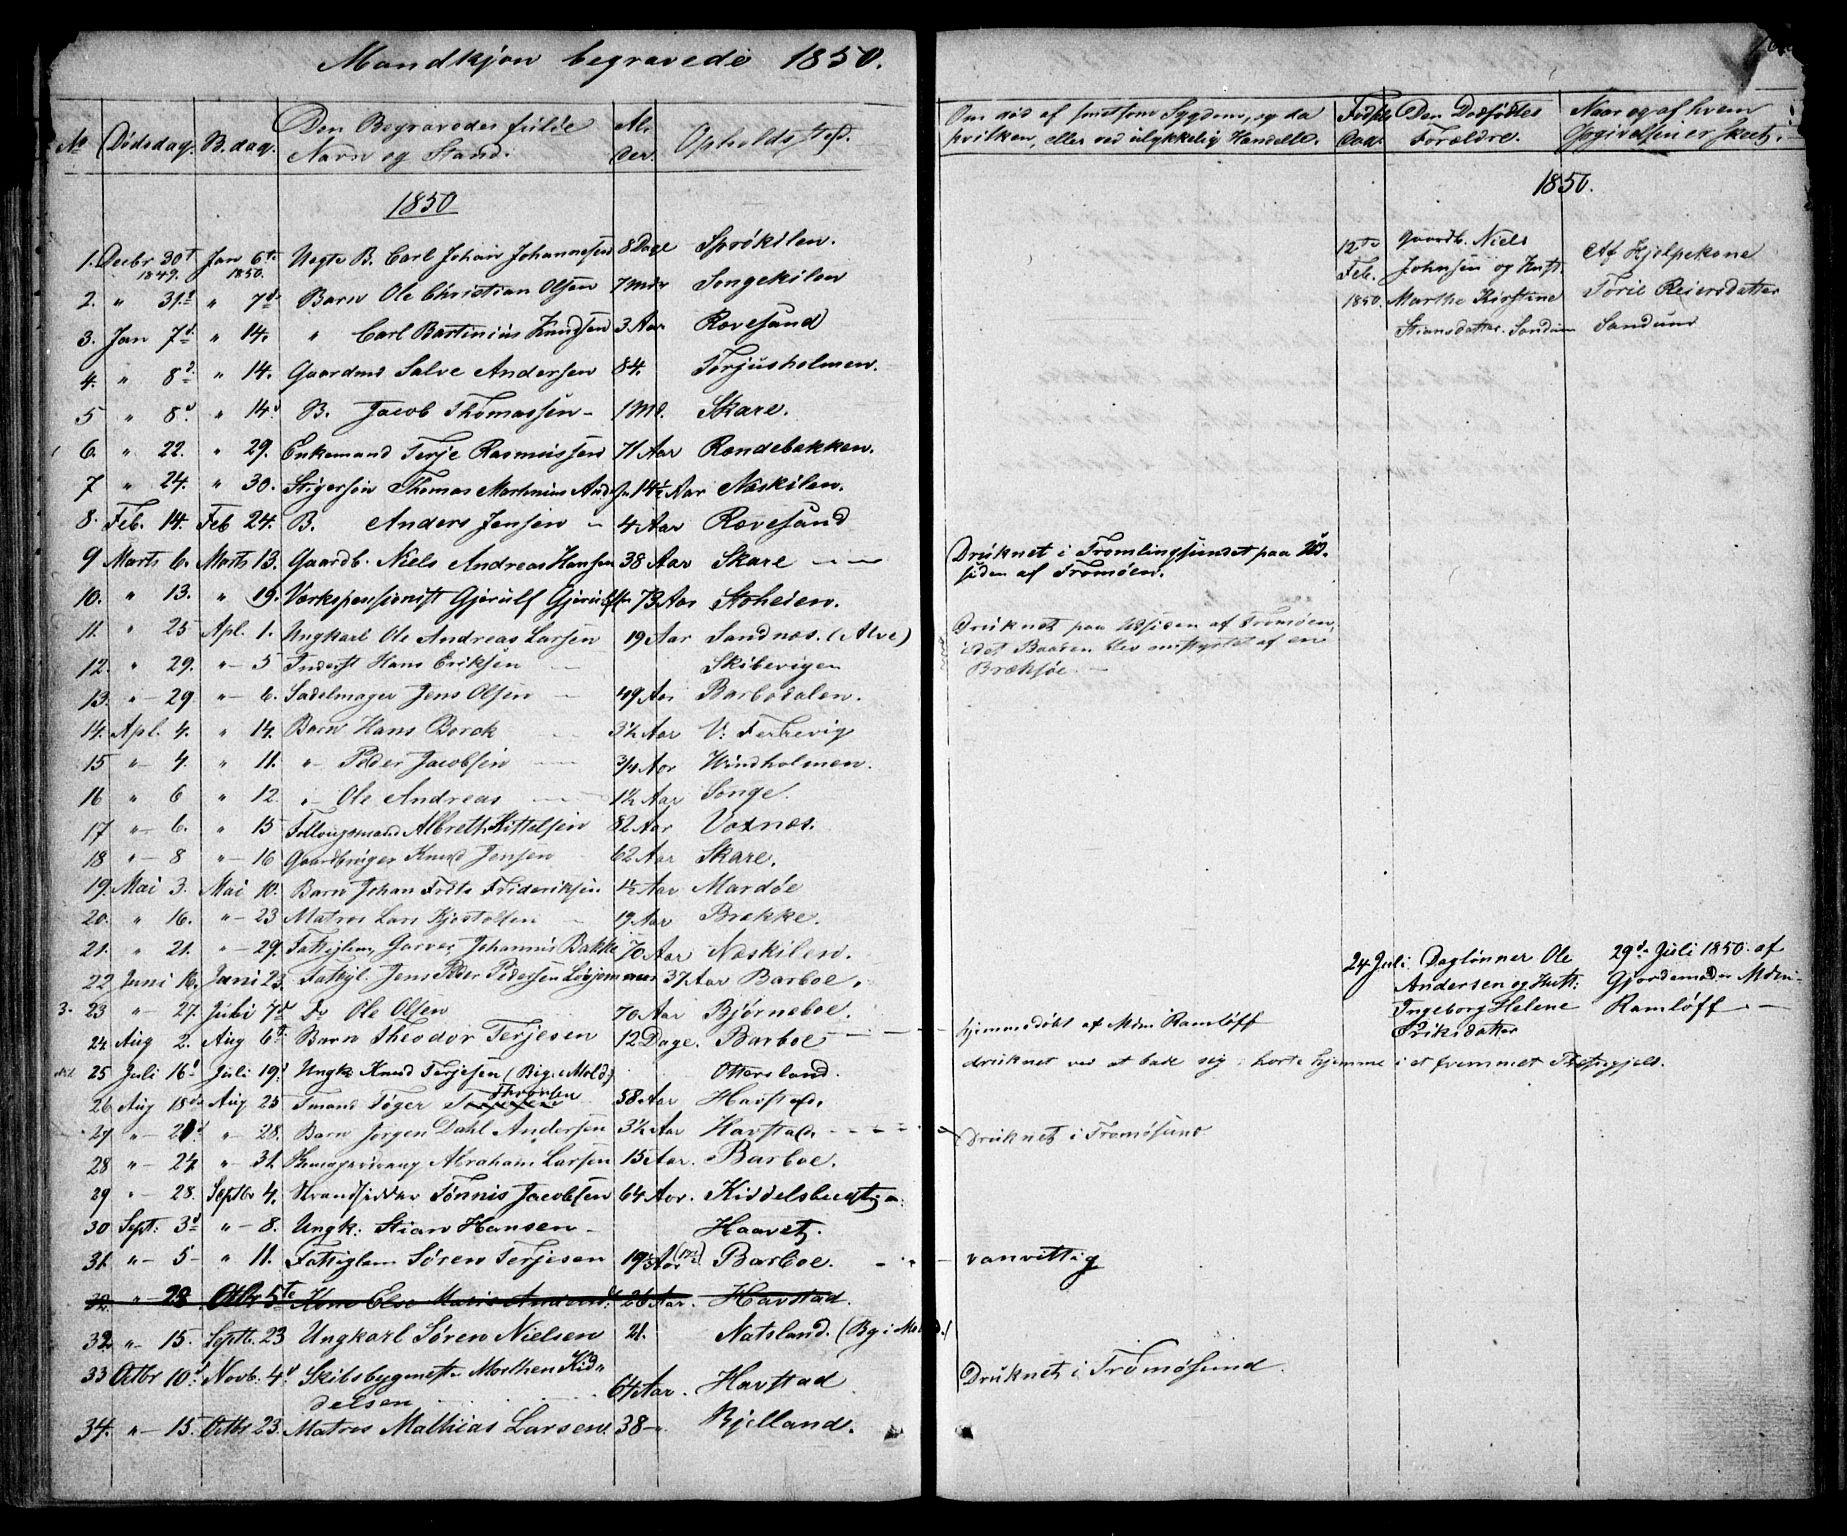 Mandkjøn begravede 1850.
No Dødsdag. B.dag. Den Begravedes fulde Navn og Stand. Alder. Opholds Sted.
1850
1. Decbr 30t 1849. Jan 6te 1850. Uegte B. Carl Johan Johannesen 8 Dage Sprøkilen.
2. " 31d " 7d Barn Ole Christian Olsen 7 Mdr Songekilen
3. Jan 7d " 14. " Carl Bartinius Knudsen 3 Aar Rovesund
4. " 8d " 14. Gaardmd Salve Andersen 84. Torjusholmen.
5 " 8d " 14d B. Jacob Thomassen - 1 Md. Skare.
6. " 22. " 29. Enkemand Terje Rasmussen 71 Aar Rændebakken.
7 " 24. " 30. Stigersøn Thomas Martinius 14½ Aar Næskilen.
8. Feb. 14. Feb 24. B. Anders Jensen - 4 Aar Rovesund
9 Marts 6. Marts 13. Gaardb. Niels Andreas Hansen 38 Aar Skare
10. " 13. " 19. Værkspensionist Gjerulf 73 Aar Stoheien.
11. " 25 Apl. 1. Ungkarl Ole Andreas Larsen 19 Aar Sandnæs. (Alve)
12. " 29. " 5 Inderst Hans Eriksen Skibevigen
13. " 29. " 6. Sadelmager Jens Olsen 49 Aar Barbodalen.
14. Apl. 4. " 14. Barn Hans Borck 3½ Aar V:
15 " 4. " 11. " Peder Jacobsen 3/4 Aar Windholmen.
16 " 6 " 12. " Ole Andreas 1½ Aar Songe.
17 " 6. " 15 Albreth Kittelsen 82 Aar Voxnæs.
18 " 8 " 16 Gaardbruger Knud Jensen 62 Aar Skare.
19. Mai 3. Mai 10. Barn Johan Frits Frideriksen 1½ Aar Mardøe
20. " 16. " 23 Matros Lars Kjostolsen 19 Aar Brække.
21. " 21. " 29. Fattiglem, Garver Johannis Bakke 70 Aar Næskilen.
22 Juni 16. Juni 23. Fattigl. Jens Peder Pedersen 37 Aar Barboe.
23 " 27. Juli 7d Do Ole Olsen 70 Aar Bjørneboe.
24 Aug 2. Aug 6t Barn Theodor Terjesen 12 Dage. Barboe
25 Juli 16d Juli 19d Ungk Knud Terjesen (Big. i Mold) Ottersland.
26 Aug 18de Aug 25 Tmand Tøger Thorsen 58 Aar Havstad.
27 " 21d " 28. Barn Jørgen Dahl Andersen 3½ Aar Havstad.
28 " 24 " 31. Abraham Larsen 15 Aar. Barboe.
29 " 28. Septbr 4. Strandsidder Tønnis Jacobsen 64 Aar.
30 Sept: 3d " 8. Ungk: Stian Hansen Haavet.
31. " 5 " 11. Fattiglem Søren Terjesen 19½ Aar Barboe.
32. " 28. Octbr 5te Kone Else Marie 26 Aar. Havstad.
32. " 15. Septb. 23 Ungkarl Søren Nielsen 21. Natsland.
33 Octbr 10d Novb: 4d Skibsbygmest. Morthen Kid-
delsen 64 Aar. Havstad
34. " 15. Octbr 23. Matros Mathias Larsen. 38 Bjelland.
Om død af smitsom Sygdom, og da hvilken, eller ved ulykkelig Hændelse. Fødsels Dag. Den Dødfødtes Forældre. Naar og af hvem Opgivelsen er skeet.
1850.
12te Feb. 1850. Gaardb. Niels Johnsen og Hust. Marthe Kirstine Stiansdatter. Sandum
Af Hjelpekone Torie Reiersdatter Sandum
Druknet i Tromlingsundet paa Ud-
siden af Tromøen.
Druknet paa Udsiden af Tromøen,
idet Baaden blev omstyrtet af en
Bræksøe.
24 Juli. Daglønner Ole Andersen og Hust: Ingeborg Helene Eriksdatter
29d Juli 1850. af Gjordemoder Mdm Ramløff
hjemmedøbt af Mdm Ramløff
druknet ved at bade sig; hørte hjemme i et fremmet Præstegjeld.
Druknet i Tromøsund.
vanvittig
Druknet i Tromøsund.